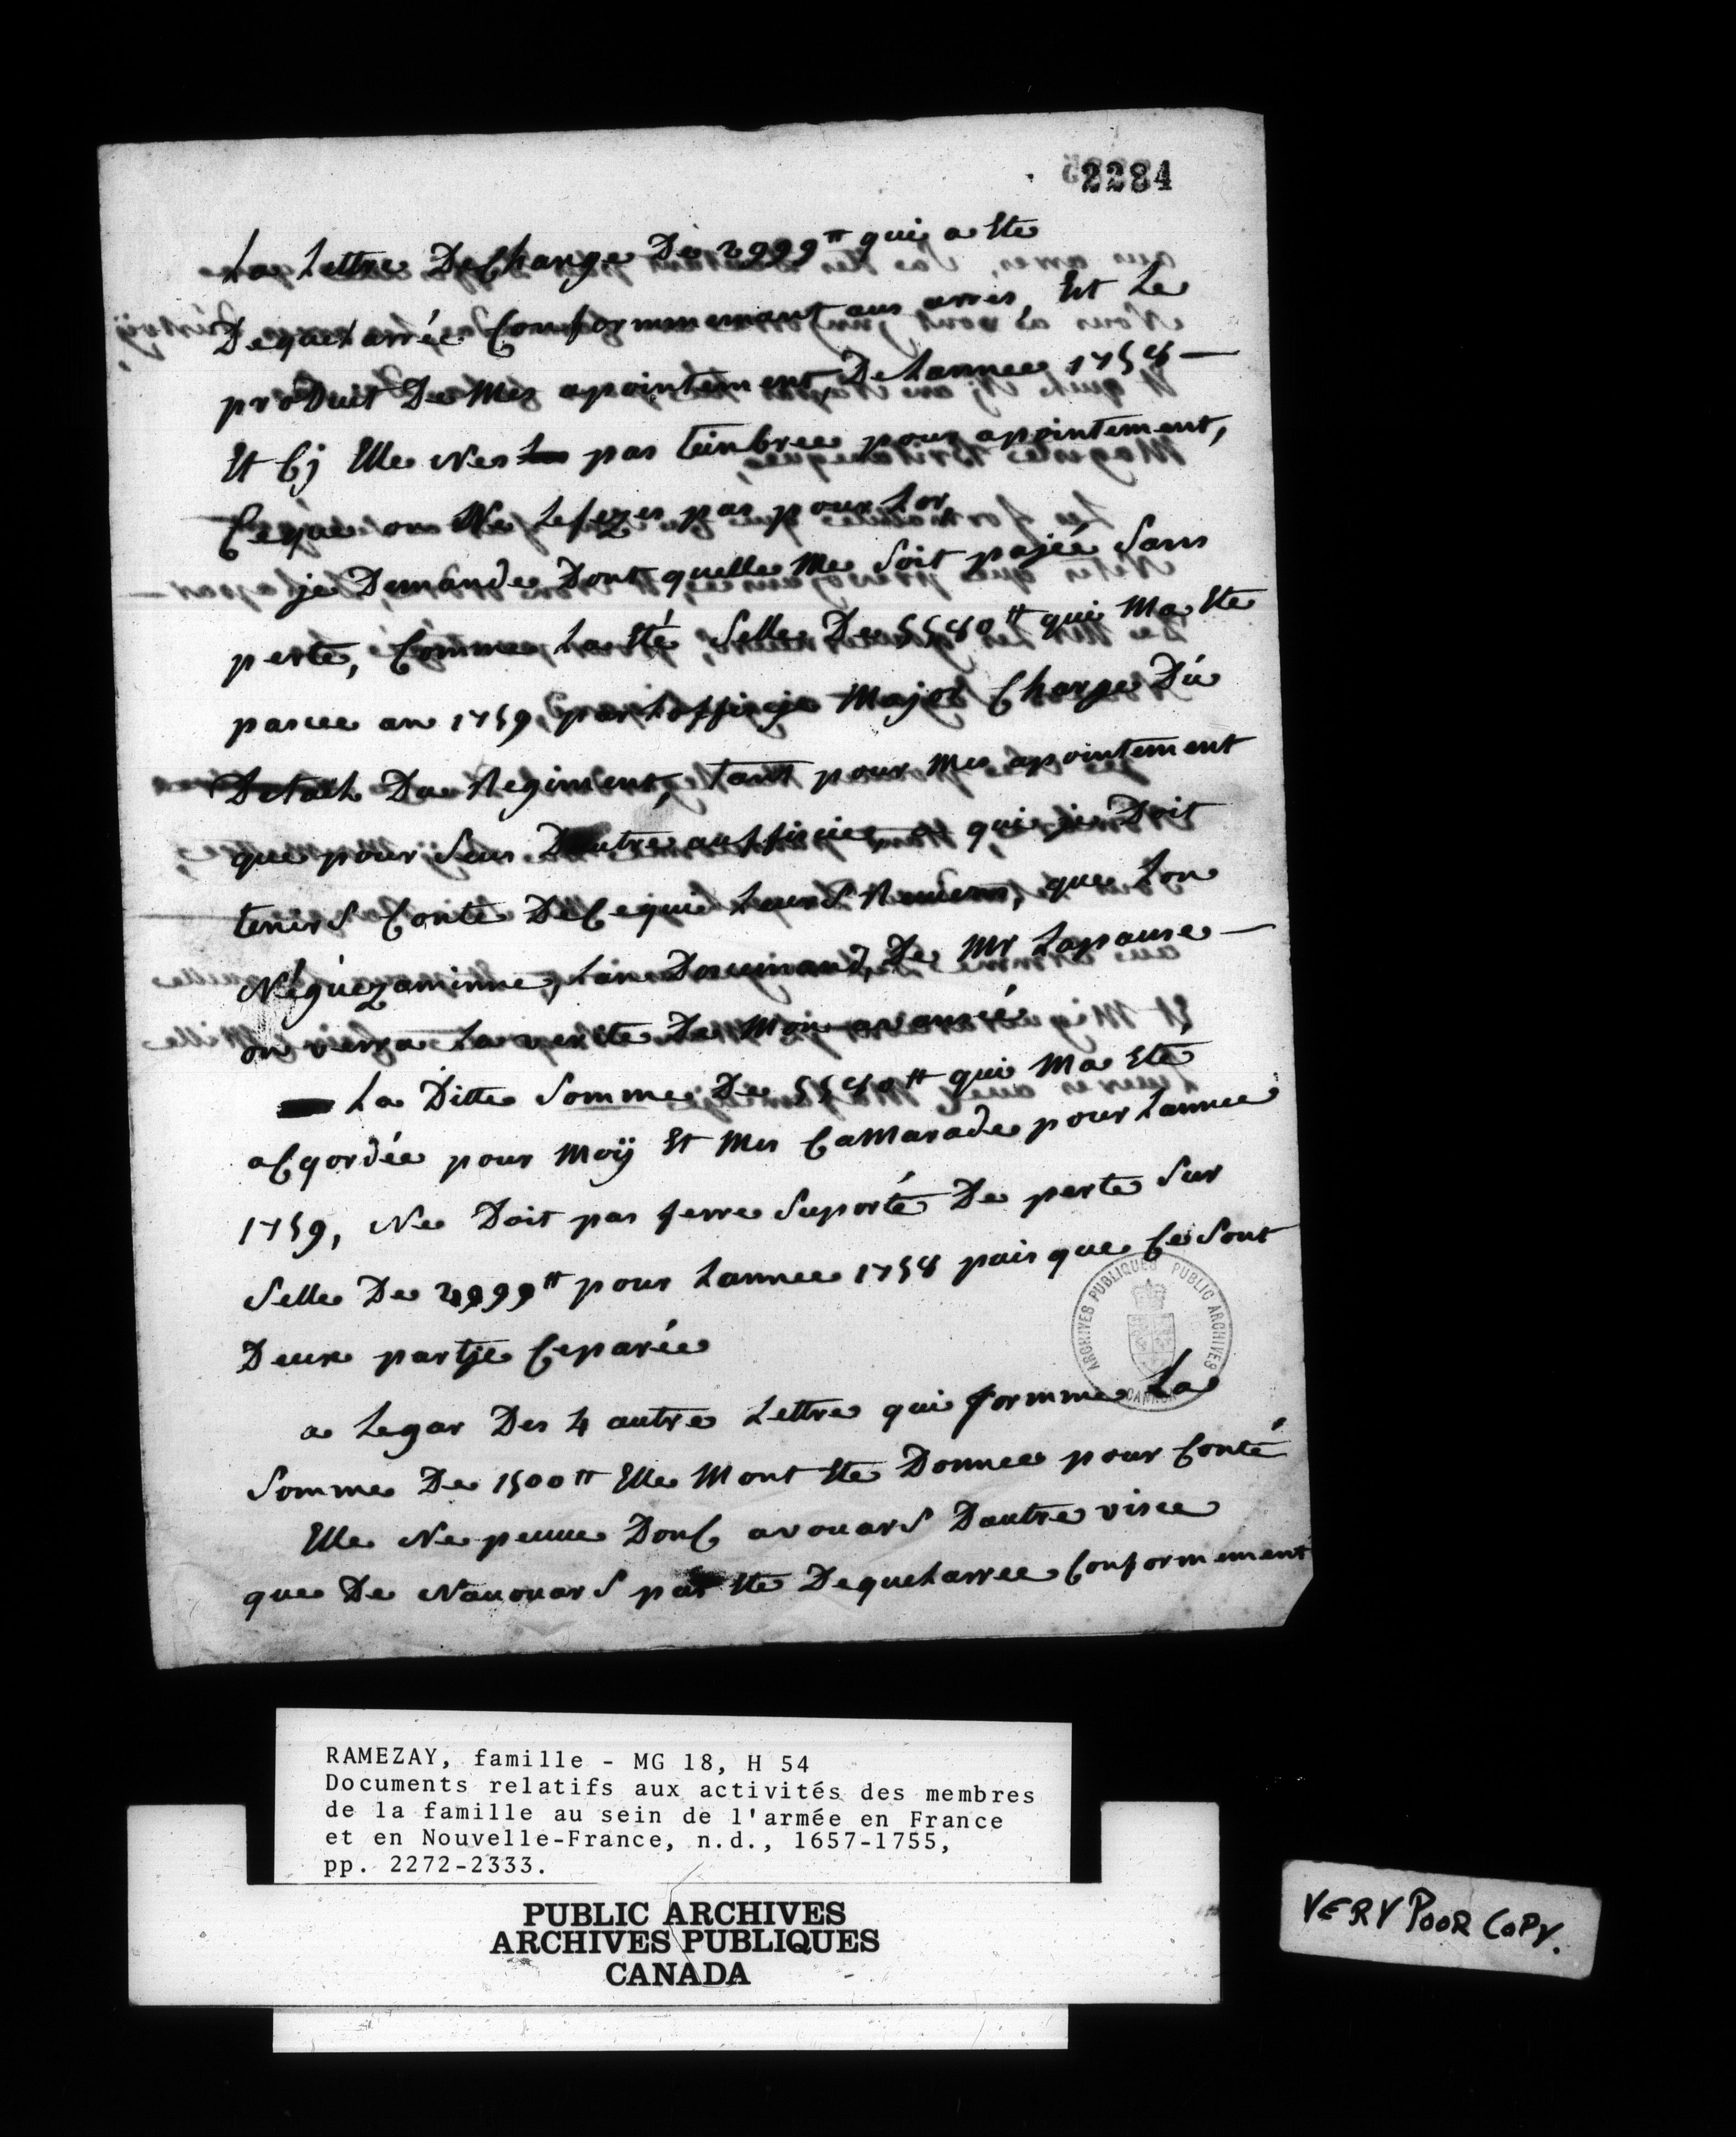 2284
La Lettre DeChange De 2999tt qui a Ete
Dequelarrée Conformmemant aus arres, Et Le
proDuit De Mes apointement De Lannee 1758 —
Et Cj Elle Nes pas timbree pour apointement,
Ceque on Ne Lefezes pas pour Lor
je Demande Dont quelle Me Soit pajée Sans
perte, Comme La Eté Selle De 5580tt qui Ma Ete
pasuee an 1759, par Lofficje Major Charge Du
Detach Du Regiment, tant pour Mes apointement
que pour Seus Dautre aufficiee a qui je Doit
tenirS Conte DeCequi LeurS Reviens, que Lon
Néquezaminne, Lan Doscumand, De Mr Lapause —
on verra La verite De Mon avansée
La Ditte Somme De 5580tt qui Ma Eté
aCqordée pour Moÿ Et Mes CaMarade pour Lannee
1759, Ne Doit pas ferre Suporté De perte Sur
Selle De 2999tt pour Lannee 1758 puis que Ce Sont
Deux partje Ceparée
a Legar Des 4 autre Lettre qui formme La
Somme De 1500tt Elle Mont Ete Donnee pour Conté
Elle Ne peuve DonC avouarS Dautre visee
que De NavouarS pas Ete Dequelarree Conformement
ARCHIVES PUBLIQUES PUBLIC ARCHIVES
CANADA
RAMEZAY, famille - MG 18, H 54
Documents relatifs aux activités des membres
de la famille au sein de l'armée en France
et en Nouvelle-France, n.d., 1657-1755,
pp. 2272-2333.
PUBLIC ARCHIVES
ARCHIVES PUBLIQUES
CANADA
VERY POOR COPY.